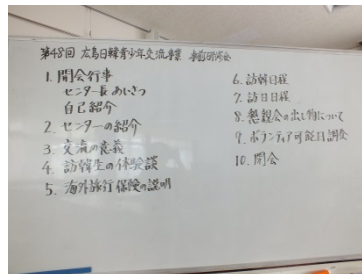 第48回 広島日韓青少年交流事業 事前研修会
1. 開会行事
センター長あいさつ
自己紹介
2. センターの紹介
3. 交流の意義
4. 訪韓生の体験談
5. 海外旅行保険の説明
6. 訪韓日程
7. 訪日日程
8. 懇親会の出し物について
9. ボランティア可能日調査
10. 閉会